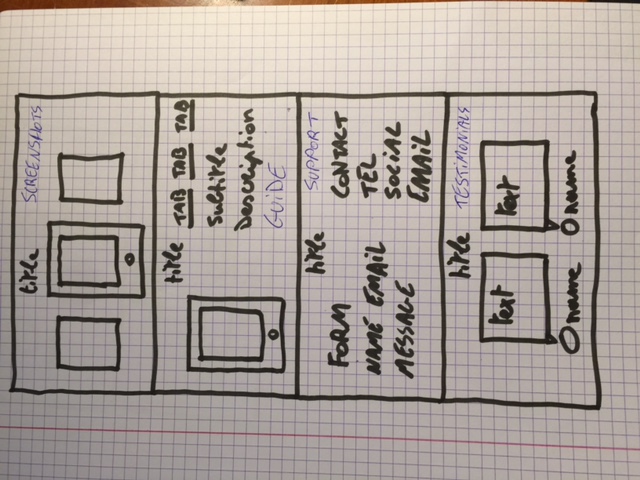 title SCREENSHOTS
title TAB TAB TAB
Subtitle
Description
GUIDE
title SUPPORT
FORM CONTACT
NAME EMAIL TEL
MESSAGE SOCIAL
EMAIL
title TESTIMONIALS
text text
name name